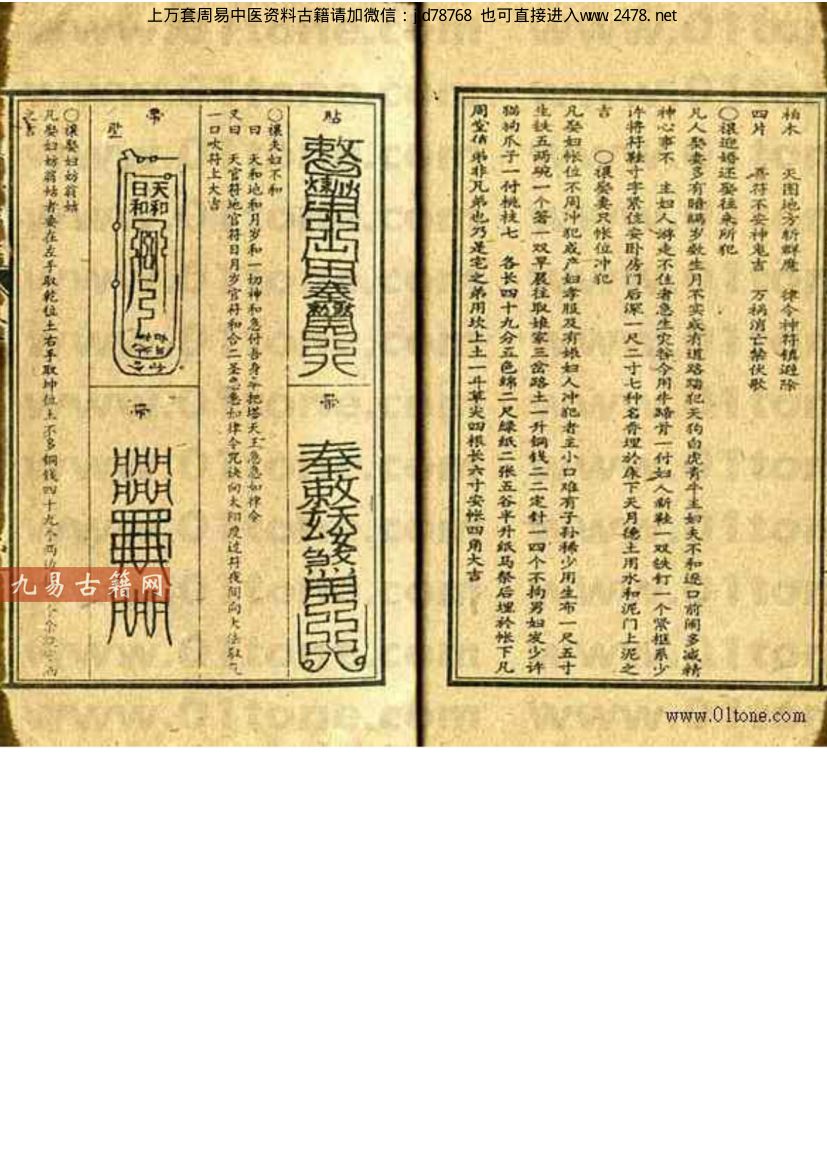 上万套周易中医资料古籍请加微信：jyd78768 也可直接进入www.2478.net
柏木 天圆地方斩群魔 律令神符镇避除
四片 弄符不安神鬼吉 万祸消亡禁伏歌
〇禳迎婚还娶往来所犯
凡人娶妻多有暗瞒岁数生月不实或有道路踏犯天狗白虎青牛主妇夫不和逆口前闹多减精
神心事不 主妇人游走不住者急生灾咎今用牛蹄骨一付妇人新鞋一双铁钉一个紧框系少
许将符鞋寸字紧位安卧房门后深一尺二寸七种名香埋於床下天月德土用水和泥门上泥之
吉 〇禳娶妻只帐位冲犯
凡娶妇帐位不周冲犯或产妇孝服及有娠妇人冲犯者主小口难有子孙稀少用生布一尺五寸
生铁五两碗一个箸一双早晨往取雄家三岔路土一升铜钱二二定针一四个不拘男妇发少许
猫狗爪子一付桃柱七 各长四十九分五色绵二尺绿纸二张五谷半升纸马祭后埋於帐下凡
周堂值弟非凡弟也乃是宅之弟用坎上土一斗草尖四根长六寸安帐四角大吉
贴
带
〇禳夫妇不和
曰 天和地和月岁和一切神和急付吾身年把塔天王急急如律令
又曰 天官符地官符日月岁官符和合二圣急急如律令咒诀向太阳度过符夜间向大法取气
一口吹符上大吉
带
壁
天和
日和
带
〇禳娶妇妨翁姑
凡娶妇妨翁姑者妻在左手取乾位土右手取坤位土不多铜钱四十九个两边
之吉
九易古籍网
www.01tone.com